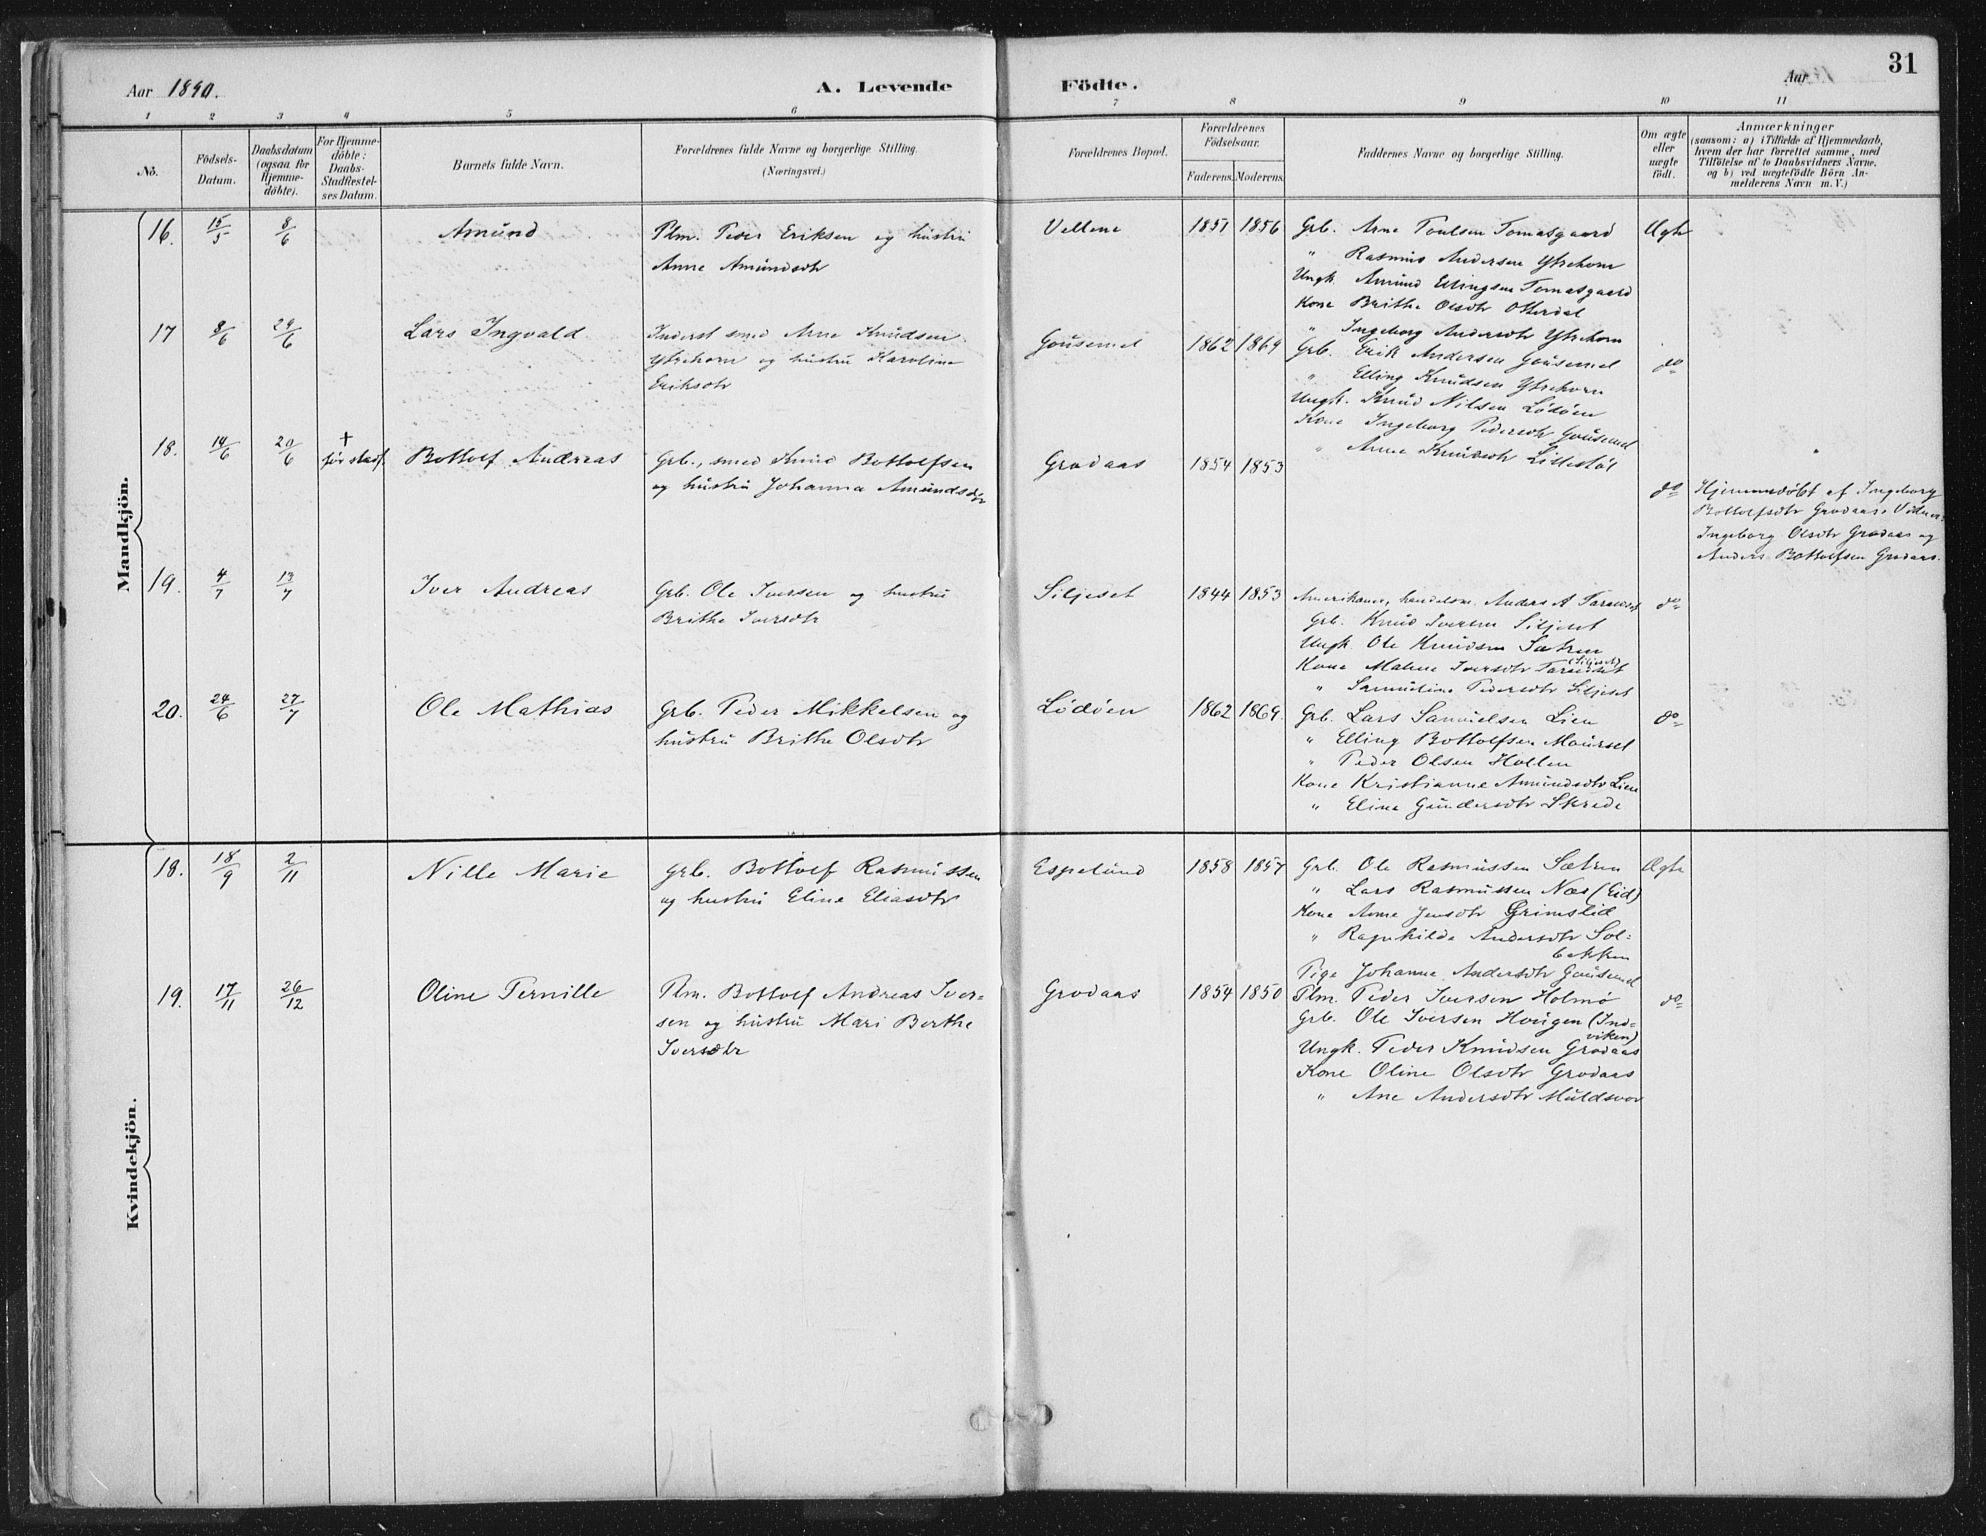 Aar 1890.
A. Levende Födte.
Aar
31
1 2 3 4 5 6 7 8 9 10 11
No.
Födsels-Datum.
Daabsdatum (ogsaa for Hjemme-döbte).
For Hjemme-döbte: Daabs-Stadfæstel-ses Datum.
Barnets fulde Navn.
Forældrenes fulde Navne og borgerlige Stilling.
(Næringsvei.)
Forældrenes Bopæl.
Forældrenes Födselsaar.
Faderens. Moderens.
Faddernes Navne og borgerlige Stilling.
Om ægte eller uægte födt.
Anmærkninger
(saasom: a) i Tilfælde af Hjemmedaab,
hvem der har forrettet samme, med
Tilföielse af to Daabsvidners Navne,
og b) ved uægtefödte Börn An-
melderens Navn m. V.)
Mandkjön.
16. 15/5 8/6 Amund
Plm. Peder Eriksen og hustru
Anne Amundsdtr
Vellene 1851 1856
Grb. Arne Poulsen Tomasgaard
" Rasmus Andersen Ytrehorn
Ungk. Amund Ellingsen Tomasgaard
Kone Brithe Olsdtr Otterdal
" Ingeborg Andersdtr Ytrehorn
Ægte
17 8/6 29/6 Lars Ingvald
Inderst smed Arne Knudsen
Ytrehorn og hustru Karoline
Eriksdtr
Gousemel 1862 1869
Grb. Erik Andersen Gousemel
" Elling Knudsen Ytrehorn
Ungk. Knud Nilsen Lødøen
Kone Ingeborg Pedersdtr Gousemel
" Anne Knudsdtr Lillestøl
do
18. 14/6 20/6 † før stadf. Bottolf Andreas
Grb., smed Knud Bottolfsen
og hustru Johanna Amundsdtr
Grodaas 1854 1853
do
Hjemmedøbt af Ingeborg
Bottolfsdtr Grodaas. Vidner:
Ingeborg Olsdtr Grodaas og
Anders Bottolfsen Grodaas.
19. 4/7 13/7 Iver Andreas
Grb. Ole Iversen og hustru
Brithe Iversdtr
Siljeset 1844 1853
Amerikaner, handelsm. Anders A
Grb. Knud Iversen Siljeset
Ungk Ole Knudsen Sætren
Kone Malene Iversdtr (Siljeset)
" Samueline Pedersdtr Siljeset
do
20. 24/6 27/7 Ole Mathias
Grb. Peder Mikkelsen og
hustru Brithe Olsdtr
Lødøen 1862 1869.
Grb. Lars Samuelsen Lien
" Elling Bottolfsen Maurset
" Peder Olsen Hollen
Kone Kristianne Amundsdtr Lien
" Eline Gundersdtr Skrede
do
Kvindekjön.
18. 18/9 2/11 Nille Marie
Grb. Bottolf Rasmussen
og hustru Eline Eliasdtr
Espelund 1858 1857
Grb. Ole Rasmussen Sætren
" Lars Rasmussen Næs (Eid)
Kone Anne Jensdtr Grimslid
" Ragnhilda Andersdtr Sol=
bakken
Pige Johanne Andersdtr Gousemel
Ægte
19. 17/11 26/12 Oline Pernille
Plm. Bottolf Andreas Iver=
sen og hustru Mari Berthe
Iversdtr
Grodaas 1854 1850
Plm. Peder Iversen Holmø
Grb. Ole Iversen Hougen (Ind=
viken)
Ungk. Peder Knudsen Grodaas
Kone Oline Olsdtr Grodaas
" Ane Andersdtr Muldsvor
do